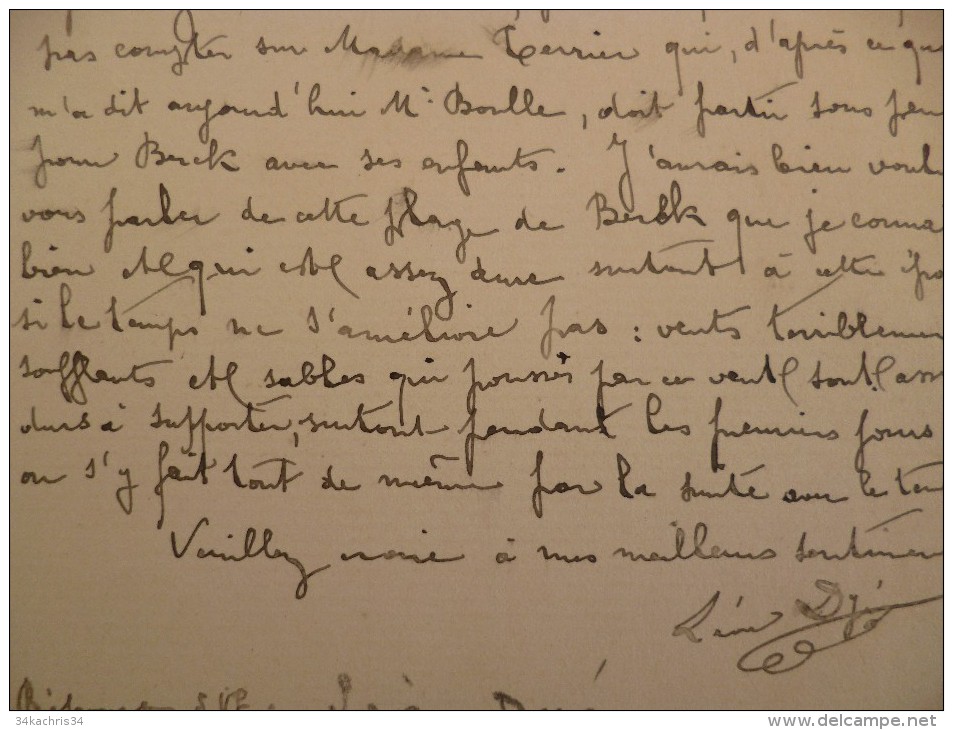 pas compter sur Madame Terrier qui, d'après ce que
m'a dit aujourd'hui Mr Boulle, doit partir sous peu
pour Berck avec ses enfants. J'aurais bien voulu
vous parler de cette plage de Berck que je connai
bien et qui est assez dure surtout à cette
si le temps ne s'améliore pas : vents terriblemen
soufflants et sables qui poussés par ce vent sont ass
durs à supporter, surtout pendant les premiers jours
on s'y fait tout de même par la suite avec le tem
Veuillez croire à mes meilleurs sentimen
Léon
34kachris34
www.delcampe.net